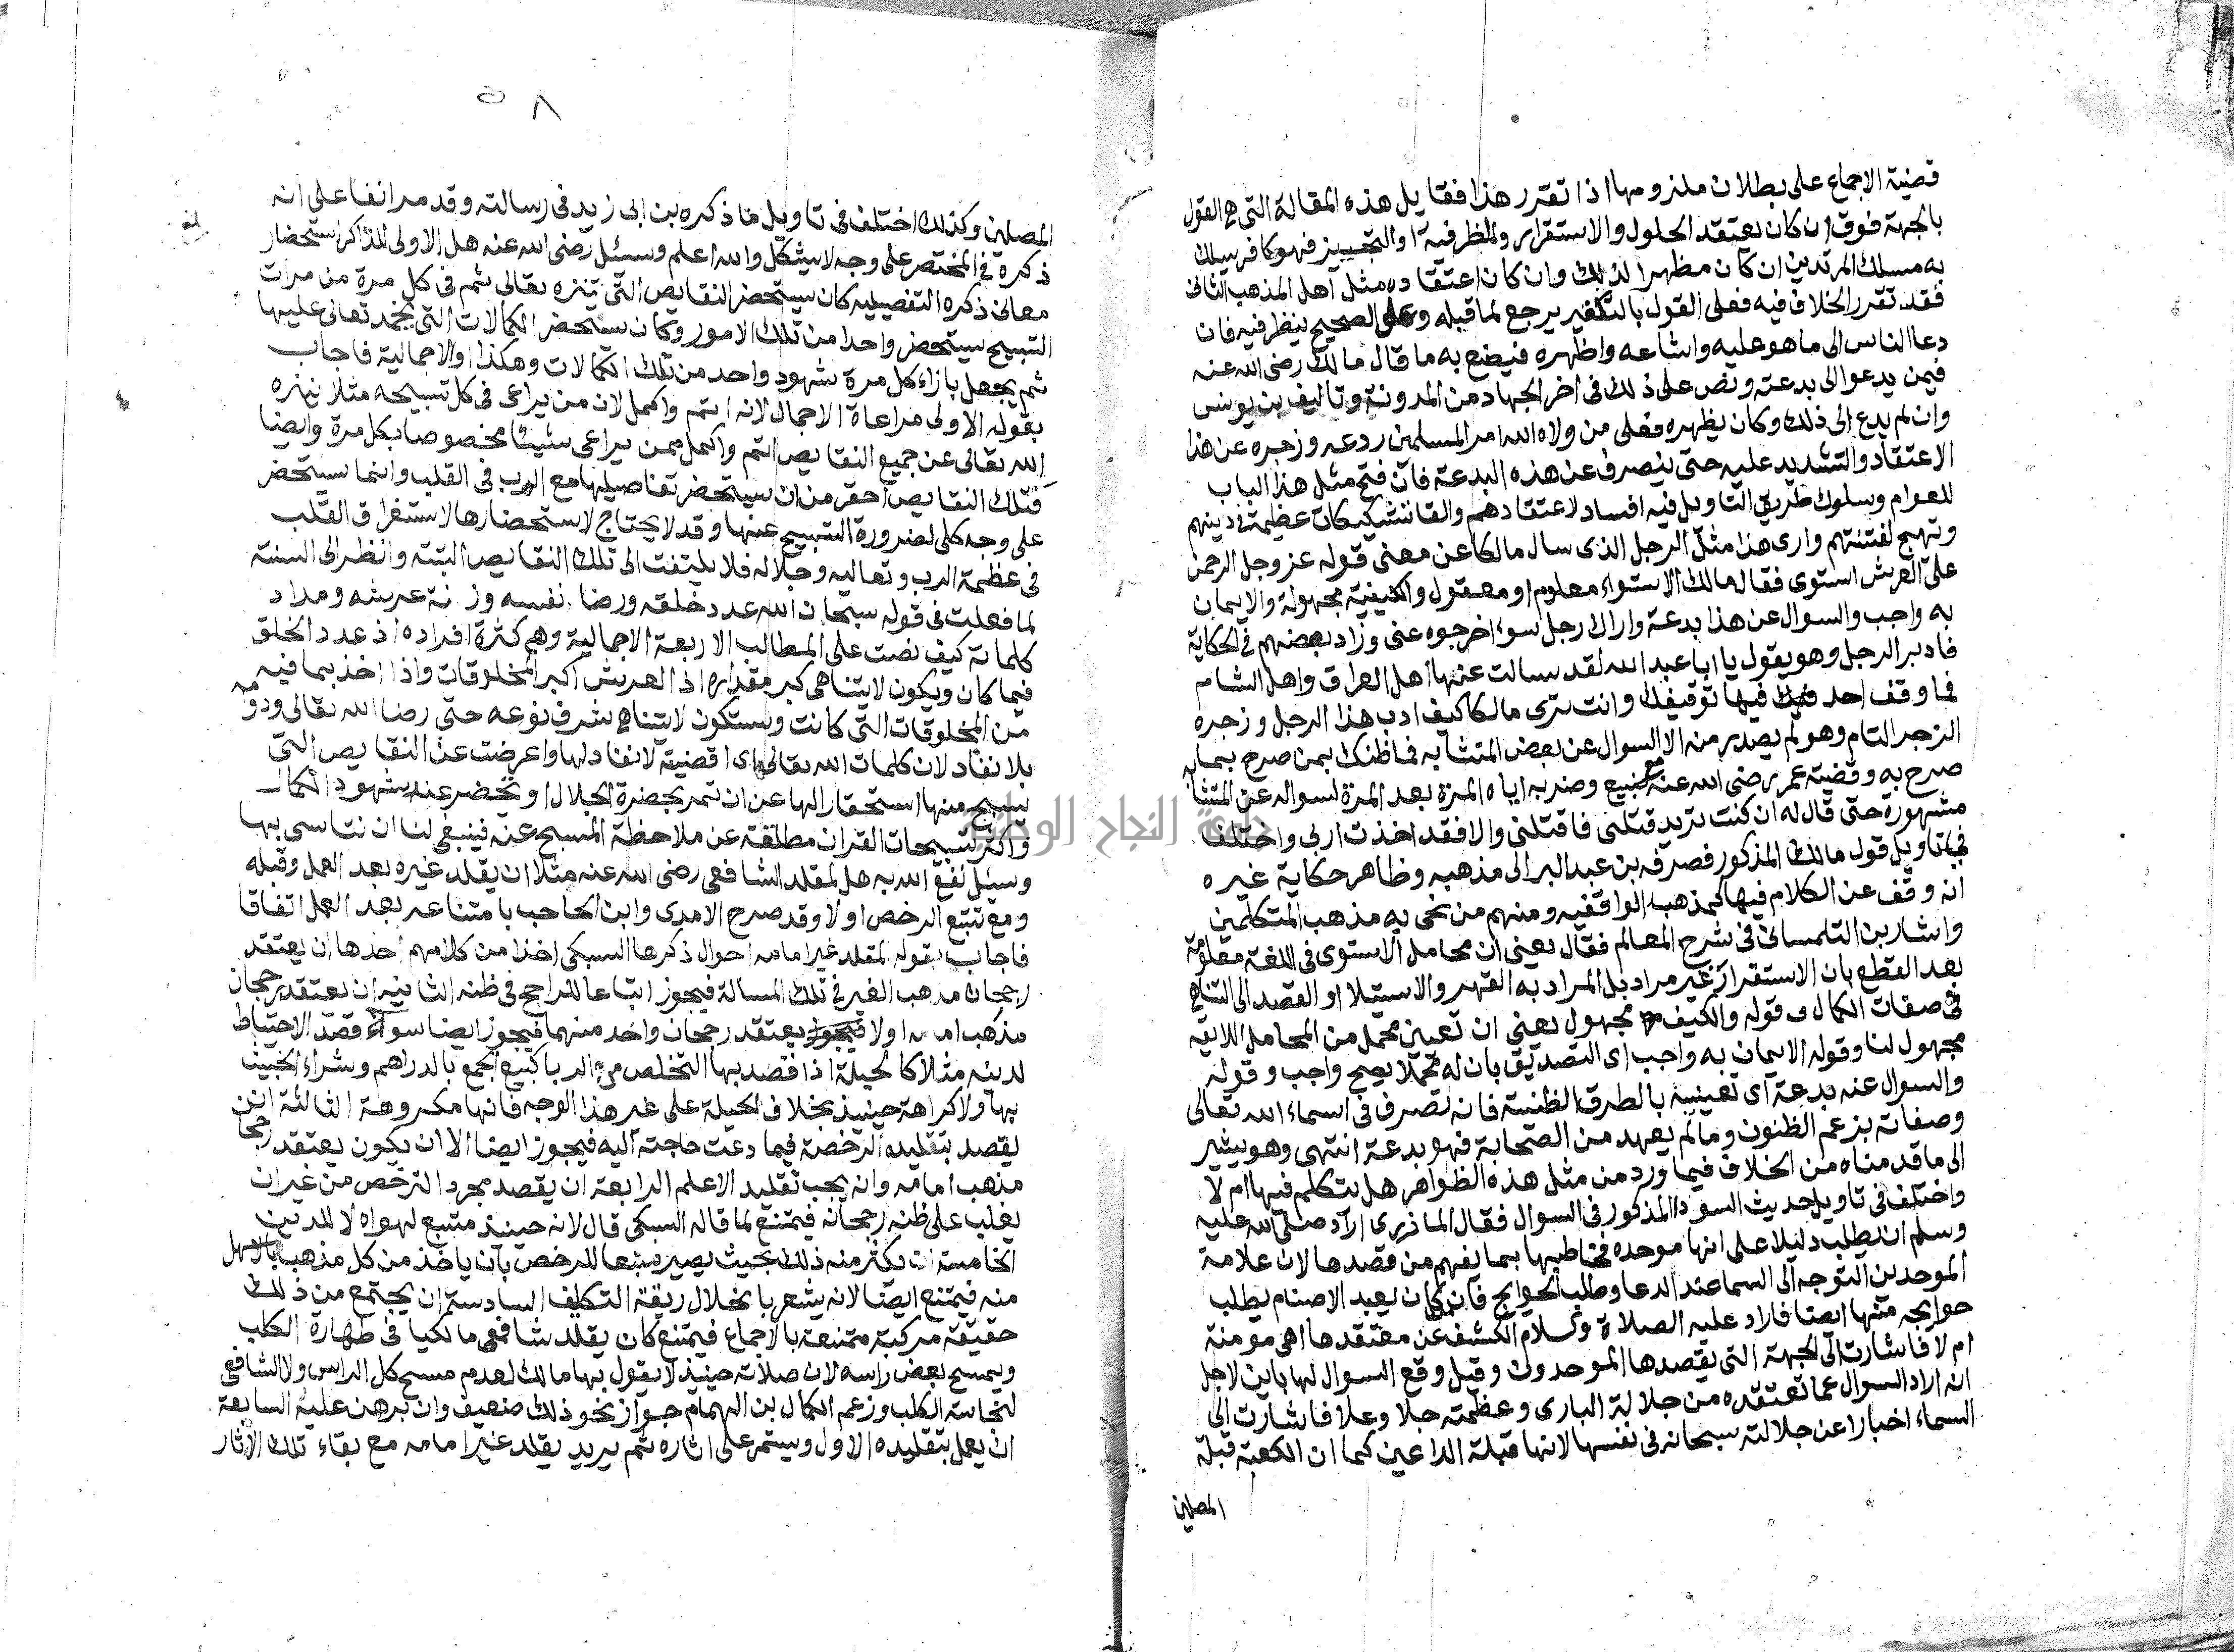 قضية الاجماع على بطلان ملزومها اذا تقرر هذا فقايل هذه المقالة التي هي القول
بالجهة فوق ان كان يعتقد الحلول والاستقرار والظرفية او التحييز فهو كافر يسلك
به مسلك المرتدين ان كان مظهرا لذلك وان كان اعتقاده مثل اهل المذهب الثاني
فقد تقرر الخلاف فيه فعلى القول بالتكفير يرجع لما قبله وعلى الصحيح ينظر فيه فان
دعا الناس الى ما هو عليه واشاعه واظهره فيصنع به ما قال مالك رضى الله عنه
فيمن يدعو الى بدعته ونص على ذلك في اخر الجهاد من المدونة وتاليف بن يونس
وان لم يدع الى ذلك وكان يظهره فعلى من ولاه الله امر المسلمين ردعه وزجره عن هذا
الاعتقاد والتشديد عليه حتى ينصرف عن هذه البدعة فان فتح مثل هذا الباب
للعوام وسلوك طريق التاويل فيه افساد لاعتقادهم والقا تشكيكات عظيمة في دينهم
وتهيج لفتنتهم وارى هذا مثل الرجل الذى سال مالكا عن معنى قوله عز وجل الرحمن
على العرش استوى فقال مالك الاستواء معلوم او معقول والكيفية مجهولة والايمان
به واجب والسوال عن هذا بدعة واراك رجل سوء اخرجوه عنى وزاد بعضهم في الحكاية
فادبر الرجل وهو يقول يا ابا عبد الله لقد سالت عنها اهل العراق واهل الشام
فما وقف احد فيها توقيفك وانت ترى مالكا كيف ادب هذا الرجل وزجره
الزجر التام وهو لم يصدر منه الا السوال عن بعض المتشابه فما ظنك بمن صرح بما
صرح به وقضية عمر رضى الله عنه مع صبيغ وضربه اياه المرة بعد المرة لسواله عن المتشابه
مشهورة حتى قال له ان كنت تريد قتلى فاقتلنى والا فقد اخذت اربى واختلف
في تاويل قول مالك المذكور فصرفه بن عبد البر الى مذهبه وظاهر حكاية غيره
انه وقف عن الكلام فيها كمذهب الواقفيه ومنهم من نحى به مذهب المتكلمين
واشار بن التلمسانى في شرح المعالم فقال يعني ان محامل الاستوى في اللغة معلومة
بعد القطع بان الاستقرار غير مراد بل المراد به القهر والاستيلا او القصد الى التناهى
في صفات الكمال وقوله والكيف مجهول يعني ان تعيين محمل من المحامل اللايقه
مجهول لنا وقوله الايمان به واجب اى التصديق بان له محملا يصح واجب وقوله
والسوال عنه بدعة اى تعيينه بالطرق الظنية فانه تصرف في اسماء الله تعالى
وصفاته بزعم الظنون وما لم يعهد من الصحابة فهو بدعة انتهى وهو يشير
الى ما قدمناه من الخلاف فيما ورد من مثل هذه الظواهر هل يتكلم فيها ام لا
واختلف في تاويل حديث السودا المذكور في السوال فقال المازرى اراد صلى الله عليه
وسلم ان يطلب دليلا على انها موحده فخاطبها بما يفهم من قصدها لان علامة
الموحدين التوجه الى السما عند الدعا وطلب الحوايج فان من كان يعبد الاصنام يطلب
حوايجه منها ايضا فاراد عليه الصلاة والسلام الكشف عن معتقدها اهى مومنة
ام لا فاشارت الى الجهة التي يقصدها الموحدون وقيل وقع السوال لها باين لاجل
انه اراد السوال عما تعتقده من جلالة البارى وعظمته جلا وعلا فاشارت الى
السماء اخبارا عن جلالته سبحانه في نفسها لانها قبلة الداعين كما ان الكعبة قبلة
المصلين
٥٨
المصلين وكذلك اختلف في تاويل ما ذكره بن ابى زيد في رسالته وقد مر انفا على انه
ذكره في المختصر على وجه لا يشكل والله اعلم وسئل رضى الله عنه هل الاولى للذاكر استحضار
معانى ذكره التفصيليه كان يستحضر النقايص التي تنزه تعالى ثم في كل مرة من مرات
التسبيح يستحضر واحدا من تلك الامور وكان يستحضر الكمالات التي يحمد تعالى عليها
ثم يجعل بازاء كل مرة شهود واحد من تلك الكمالات وهكذا او الاجمالية فاجاب
بقوله الاولى مراعاة الاجمال لانه اتم واكمل لان من يراعى في كل تسبيحه مثلا تنزه
الله تعالى عن جميع النقايص اتم واكمل ممن يراعى شيئا مخصوصا بكل مرة وايضا
فتلك النقايص احقر من ان يستحضر تفاصيلها مع الرب في القلب وانما يستحضر
على وجه كلى لضرورة التسبيح عنها وقد لا يحتاج لاستحضارها لاستغراق القلب
في عظمة الرب وتعاليه وجلاله فلا يلتفت الى تلك النقايص البتته وانظر الى السنة
لما فعلت في قوله سبحان الله عدد خلقه ورضا نفسه وزنة عرشه ومداد
كلماته كيف نصت على المطالب الاربعة الاجمالية وهم كثرة افراده اذ عدد الخلق
فيما كان ويكون لا يتناهى كبر مقداره اذ العرش اكبر المخلوقات واذا اخذ بما فيه
من المخلوقات التي كانت وستكون لا يتناهى شرف نوعه حتى رضا الله تعالى ودومه
بلا نفاد لان كلمات الله تعالى اى اقضيته لا نفاد لها واعرضت عن النقايص التي
يسبح منها استحقارا لها عن ان تمر بحضرة الجلال او تخضر عند شهود الكمال
واكثر تسبيحات القران مطلقة عن ملاحظة المسبح عنه فينبغى لنا ان نتاسى بها
وسئل نفع الله به هل لمقلد الشافعى رضى الله عنه مثلا ان يقلد غيره بعد العمل وقبله
ومع تتبع الرخص او لا وقد صرح الامدى وابن الحاجب بامتناعه بعد العمل اتفاقا
فاجاب بقوله لمقلد غير امامه احوال ذكرها السبكى اخذا من كلامهم احدها ان يعتقد
رجحان مذهب الغير في تلك المسالة فيجوز اتباعا للراجح في ظنه الثانيه ان يعتقد رجحان
مذهب امامه او لا يعتقد رجحان واحد منهما فيجوز ايضا سواء قصد الاحتياط
لدينه مثلا كالحيلة اذا قصد بها التخلص من الربا كبيع الجمع بالدراهم وشراء الجنيب
بها ولا كراهة حينيذ بخلاف الحيلة على غير هذا الوجه فانها مكروهة الثالثة ان
يقصد بتقليده الرخصة فيما دعت حاجته اليه فيجوز ايضا الا ان يكون يعتقد رجحان
مذهب امامه وانه يجب تقليد الاعلم الرابعة ان يقصد مجرد الترخص من غير ان
يغلب على ظنه رجحانه فيمتنع لما قاله السبكى قال لانه حينيذ متبع لهواه لا للدين
الخامسة ان يكثر منه ذلك بحيث يصير متبعا للرخص بان ياخذ من كل مذهب بالاسهل
منه فيمتنع ايضا لانه يشعر بانحلال ربقة التكليف السادسة ان يجتمع من ذلك
حقيقة مركبة ممتنعة بالاجماع فيمتنع كان يقلد شافعى مالكيا في طهارة الكلب
ويمسح بعض راسه لان صلاته حينيذ لا يقول بها مالك لعدم مسح كل الراس ولا الشافعى
لنجاسة الكلب وزعم الكمال بن الهمام جواز نحو ذلك ضعيف وان برهن عليه السابعة
ان يعمل بتقليده الاول ويستمر على اثاره ثم يريد يقلد غير امامه مع بقاء تلك الاثار
جامعة النجاح الوطنية